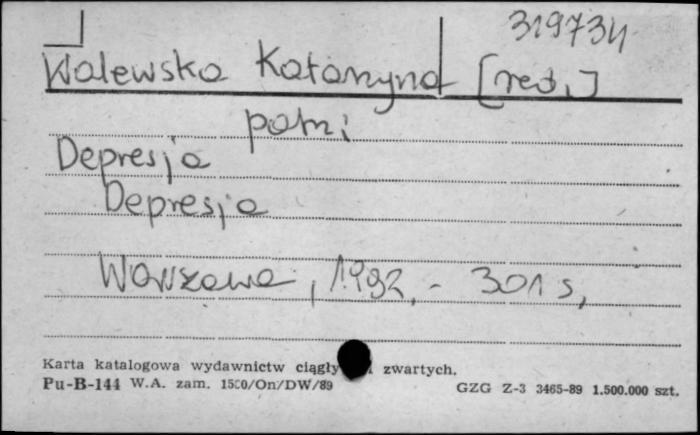 319734
Walewska Katarzyna [red.]
patrz
Depresja
Depresja
Warszawa, 1992.- 301 s,
Karta katalogowa wydawnictw ciągły zwartych.
Pu-B-144 W.A. zam. 1500/On/DW/89 GZG Z-3 3465-89 1.500.000 szt.